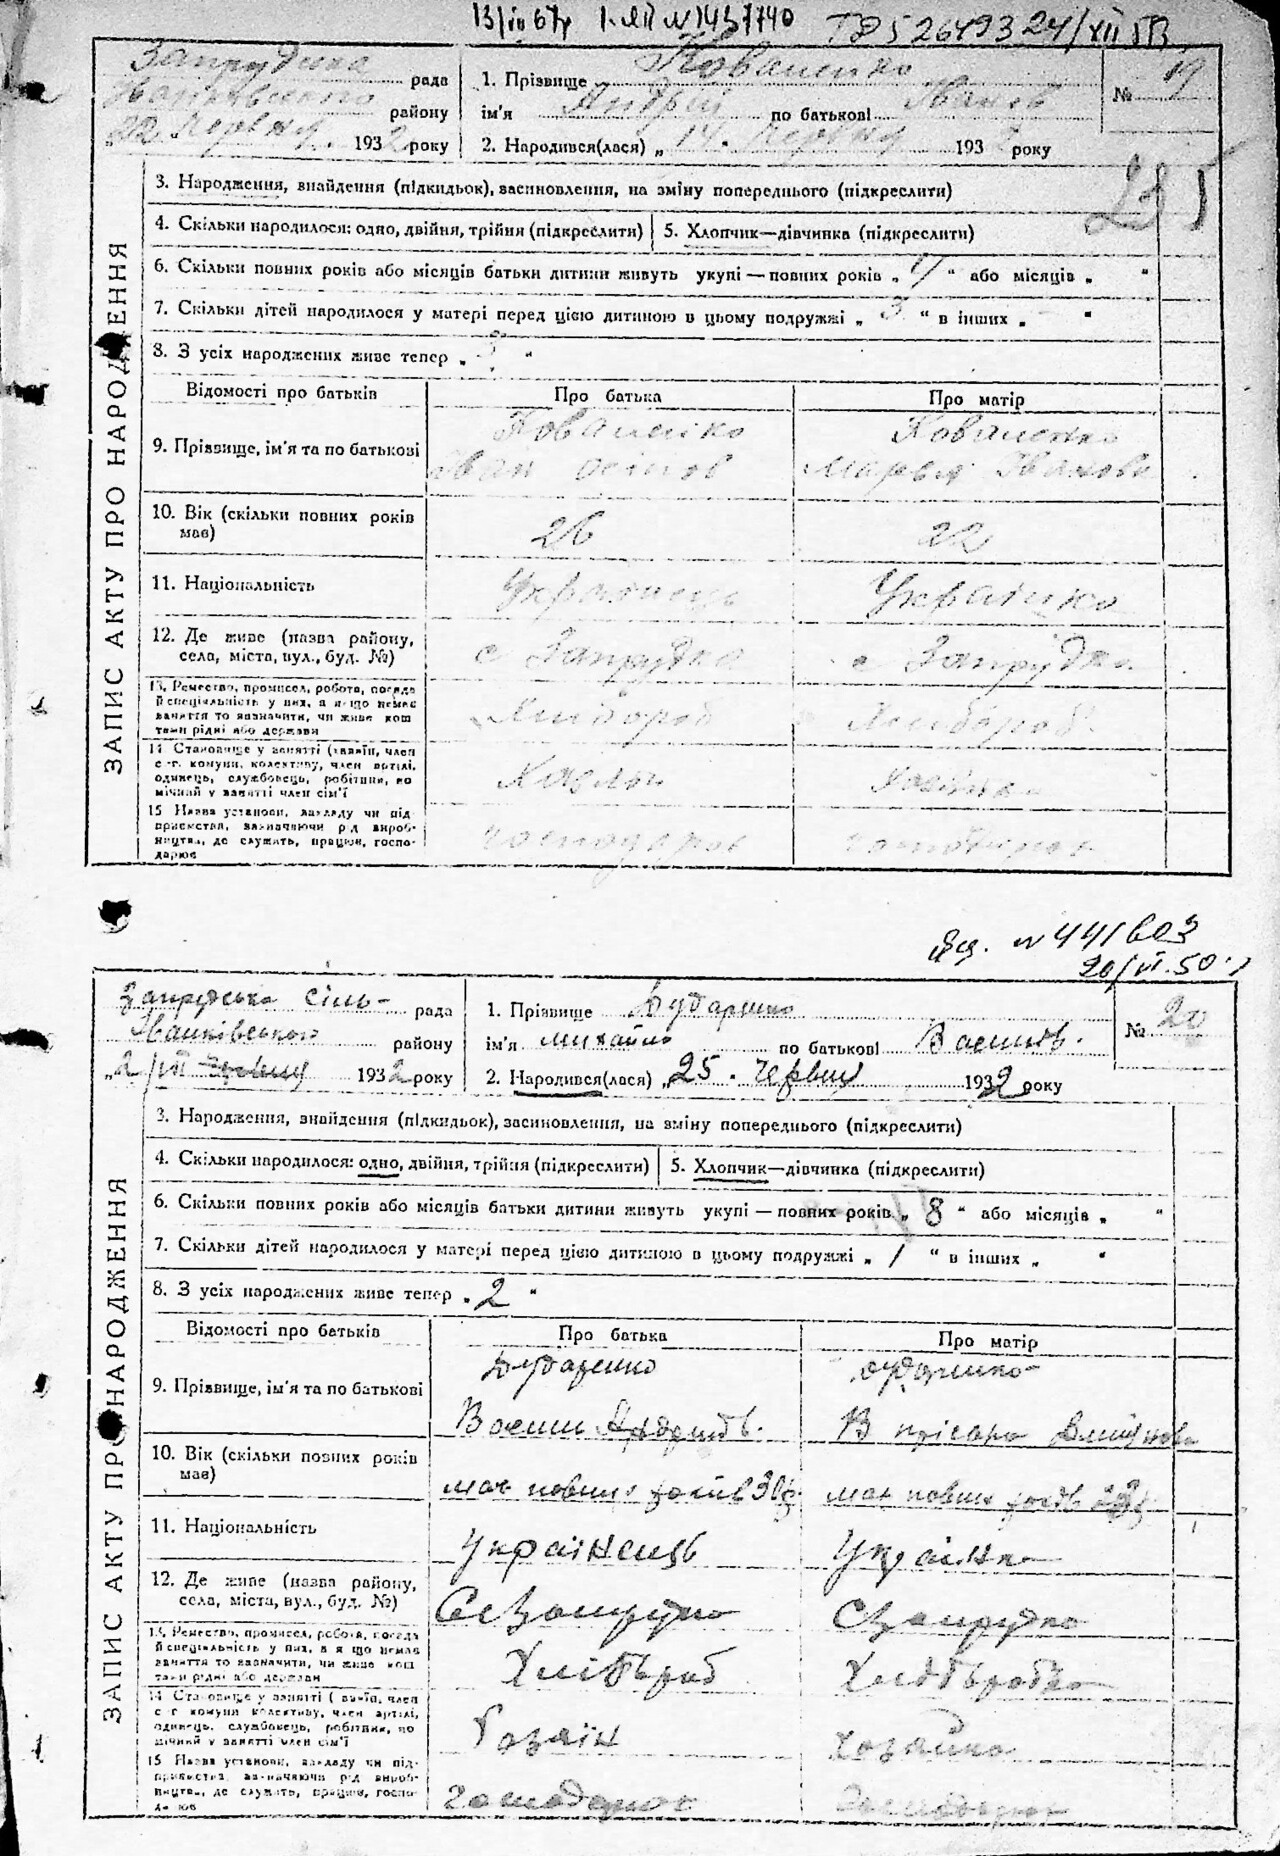 13/III 67р I-ЛП №1437740
235
Запрудська рада
Іванківського району
„22" червня 1932 року
1. Прізвище Коваленко
ім'я Андрій по батькові Іванов
2. Народився(лася) „14. червня 1932 року
№ 19
ЗАПИС АКТУ ПРО НАРОДЖЕННЯ
3. Народження, знайдення (підкидьок), засиновлення, на зміну попереднього (підкреслити)
4. Скільки народилося: одно, двійня, трійня (підкреслити)
5. Хлопчик—дівчинка (підкреслити)
6. Скільки повних років або місяців батьки дитини живуть укупі — повних років „ “ або місяців „ “
7. Скільки дітей народилося у матері перед цією дитиною в цьому подружжі „ 3 “ в інших „ “
8. З усіх народжених живе тепер „ 3 “
Відомості про батьків Про батька Про матір
9. Прізвище, ім'я та по батькові
Коваленко Коваленко
Іван Осипов Марья Іванова
10. Вік (скільки повних років має) 26 22
11. Національність Українець Українко
12. Де живе (назва району, села, міста, вул., буд. №) с Запрудка с Запрудка
13. Ремество, промисел, робота, посада
й спеціяльність у них, а якщо немає
заняття то зазначити, чи живе кош
тами рідні або держави
Хлибороб Хлибороб
14 Становище у занятті (хазяїн, член
с-г. комуни, колективу, член артілі,
одинець, службовець, робітник, по
мічний у занятті член сім'ї
15 Назва установи, закладу чи під
приємства, зазначаючи рід вироб-
ництва, де служить, працює, госпо-
дарює
№ 441603
20/VI.50.
Запрудська сіль- рада
Іванківського району
„2/VII червня 1932 року
1. Прізвище Дударенко
ім'я Михайло по батькові Василів.
2. Народився(лася) „25. червня 1932 року
№ 20
ЗАПИС АКТУ ПРО НАРОДЖЕННЯ
3. Народження, знайдення (підкидьок), засиновлення, на зміну попереднього (підкреслити)
4. Скільки народилося: одно, двійня, трійня (підкреслити)
5. Хлопчик—дівчинка (підкреслити)
6. Скільки повних років або місяців батьки дитини живуть укупі — повних років „ 8 “ або місяців „ “
7. Скільки дітей народилося у матері перед цією дитиною в цьому подружжі „ 1 “ в інших „ “
8. З усіх народжених живе тепер „ 2 “
Відомості про батьків Про батька Про матір
9. Прізвище, ім'я та по батькові
Дударенко Дударенко
10. Вік (скільки повних років має) має повних років 30 має повних років
11. Національність Українець Українка
12. Де живе (назва району, села, міста, вул., буд. №) Се Запрудка С Запрудка
13. Ремество, промисел, робота, посада
й спеціяльність у них, а якщо немає
заняття то зазначити, чи живе кош
тами рідні або держави
Хлібороб
14 Становище у занятті (хазяїн, член
с-г комуни колективу, член артілі,
одинець, службовець, робітник, по
мічний у занятті член сім'ї
Хазяїн Хозяйка
15 Назва установи, закладу чи під-
приємства, зазначаючи рід вироб-
ництва, де служить, працює, госпо-
дарює